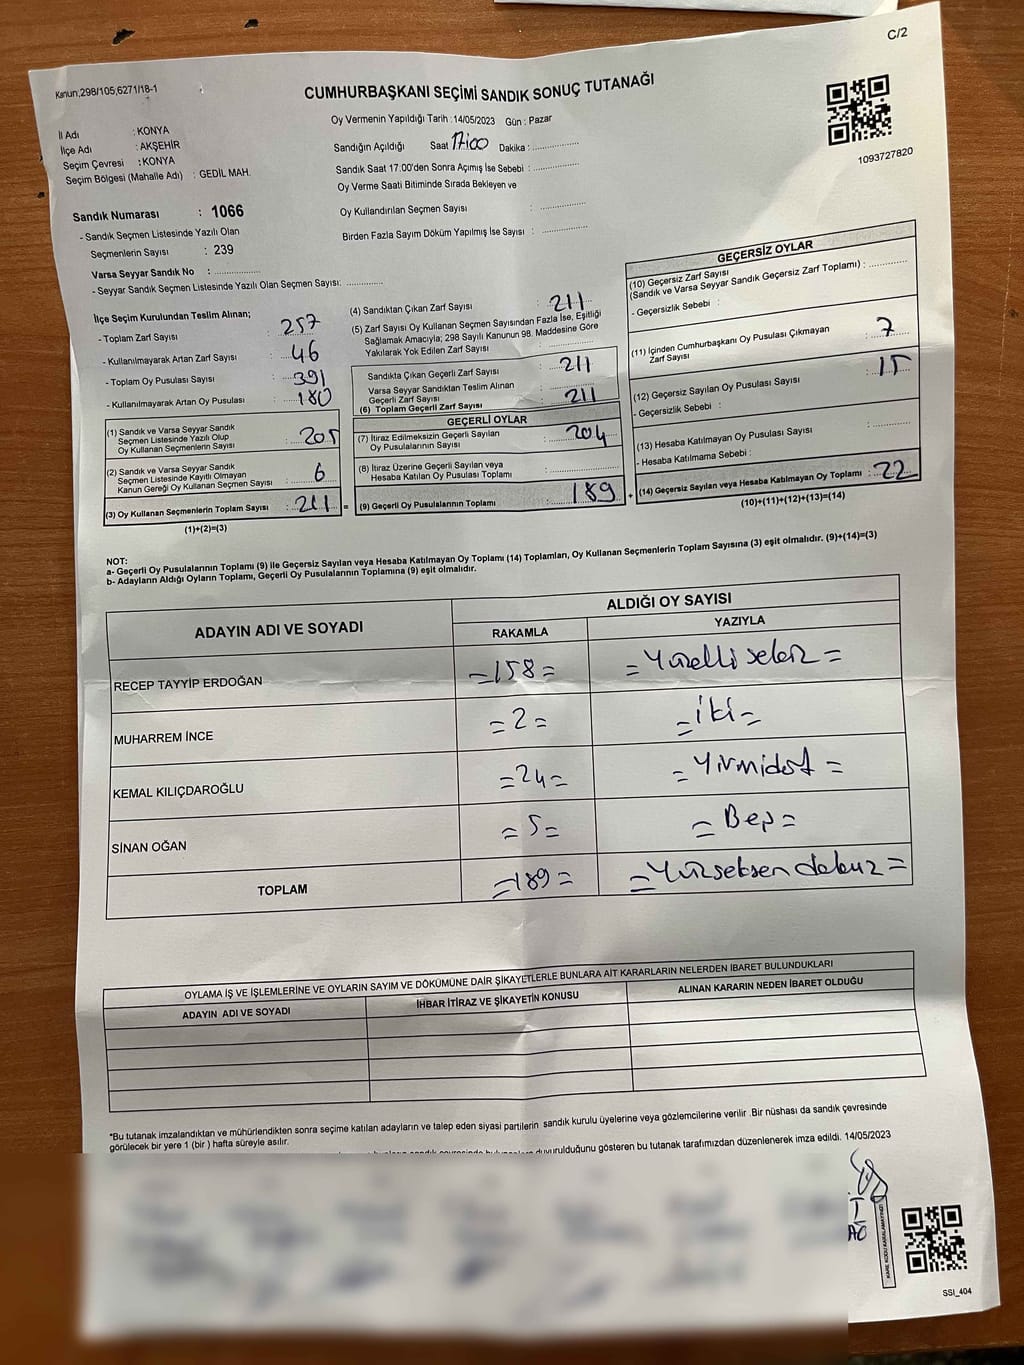 C/2
Kanun;298/105,6271/18-1
CUMHURBAŞKANI SEÇİMİ SANDIK SONUÇ TUTANAĞI
Oy Vermenin Yapıldığı Tarih :14/05/2023 Gün : Pazar
İl Adı : KONYA
İlçe Adı : AKŞEHİR
Seçim Çevresi : KONYA
Seçim Bölgesi (Mahalle Adı) : GEDİL MAH.
Sandık Numarası : 1066
- Sandık Seçmen Listesinde Yazılı Olan
Seçmenlerin Sayısı : 239
Varsa Seyyar Sandık No : ....................
- Seyyar Sandık Seçmen Listesinde Yazılı Olan Seçmen Sayısı: ..............
Sandığın Açıldığı Saat 17:00 Dakika : ..............
Sandık Saat 17:00'den Sonra Açımış İse Sebebi : ..............
Oy Verme Saati Bitiminde Sırada Bekleyen ve
Oy Kullandırılan Seçmen Sayısı : ..............
Birden Fazla Sayım Döküm Yapılmış İse Sayısı : ..............
1093727820
İlçe Seçim Kurulundan Teslim Alınan;
- Toplam Zarf Sayısı : 257
- Kullanılmayarak Artan Zarf Sayısı : 46
- Toplam Oy Pusulası Sayısı : 391
- Kullanılmayarak Artan Oy Pusulası : 180
(1) Sandık ve Varsa Seyyar Sandık
Seçmen Listesinde Yazılı Olup
Oy Kullanan Seçmenlerin Sayısı : 205
(2) Sandık ve Varsa Seyyar Sandık
Seçmen Listesinde Kayıtlı Olmayan
Kanun Gereği Oy Kullanan Seçmen Sayısı : 6
(3) Oy Kullanan Seçmenlerin Toplam Sayısı : 211
(1)+(2)=(3)
(4) Sandıktan Çıkan Zarf Sayısı : 211
(5) Zarf Sayısı Oy Kullanan Seçmen Sayısından Fazla İse, Eşitliği
Sağlamak Amacıyla; 298 Sayılı Kanunun 98. Maddesine Göre
Yakılarak Yok Edilen Zarf Sayısı : ..............
Sandıkta Çıkan Geçerli Zarf Sayısı : 211
Varsa Seyyar Sandıktan Teslim Alınan
Geçerli Zarf Sayısı
(6) Toplam Geçerli Zarf Sayısı : 211
GEÇERLİ OYLAR
(7) İtiraz Edilmeksizin Geçerli Sayılan
Oy Pusulalarının Sayısı : 204
(8) İtiraz Üzerine Geçerli Sayılan veya
Hesaba Katılan Oy Pusulası Toplamı : ..............
= (9) Geçerli Oy Pusulalarının Toplamı : 189
GEÇERSİZ OYLAR
(10) Geçersiz Zarf Sayısı
(Sandık ve Varsa Seyyar Sandık Geçersiz Zarf Toplamı) : ............
- Geçersizlik Sebebi :
(11) İçinden Cumhurbaşkanı Oy Pusulası Çıkmayan
Zarf Sayısı : 7
(12) Geçersiz Sayılan Oy Pusulası Sayısı : 15
- Geçersizlik Sebebi :
(13) Hesaba Katılmayan Oy Pusulası Sayısı : ............
- Hesaba Katılmama Sebebi :
+ (14) Geçersiz Sayılan veya Hesaba Katılmayan Oy Toplamı : 22
(10)+(11)+(12)+(13)=(14)
NOT:
a- Geçerli Oy Pusulalarının Toplamı (9) ile Geçersiz Sayılan veya Hesaba Katılmayan Oy Toplamı (14) Toplamları, Oy Kullanan Seçmenlerin Toplam Sayısına (3) eşit olmalıdır. (9)+(14)=(3)
b- Adayların Aldığı Oyların Toplamı, Geçerli Oy Pusulalarının Toplamına (9) eşit olmalıdır.
ADAYIN ADI VE SOYADI ALDIĞI OY SAYISI
RAKAMLA YAZIYLA
RECEP TAYYİP ERDOĞAN =158= =Yüzelli sekiz=
MUHARREM İNCE =2= =iki=
KEMAL KILIÇDAROĞLU =24= =Yirmidört=
SİNAN OĞAN =5= =Beş=
TOPLAM =189= =Yüzseksen dokuz=
OYLAMA İŞ VE İŞLEMLERİNE VE OYLARIN SAYIM VE DÖKÜMÜNE DAİR ŞİKAYETLERLE BUNLARA AİT KARARLARIN NELERDEN İBARET BULUNDUKLARI
ADAYIN ADI VE SOYADI İHBAR İTİRAZ VE ŞİKAYETİN KONUSU ALINAN KARARIN NEDEN İBARET OLDUĞU
*Bu tutanak imzalandıktan ve mühürlendikten sonra seçime katılan adayların ve talep eden siyasi partilerin sandık kurulu üyelerine veya gözlemcilerine verilir .Bir nüshası da sandık çevresinde
görülecek bir yere 1 (bir ) hafta süreyle asılır.
duyurulduğunu gösteren bu tutanak tarafımızdan düzenlenerek imza edildi. 14/05/2023
SSI_404